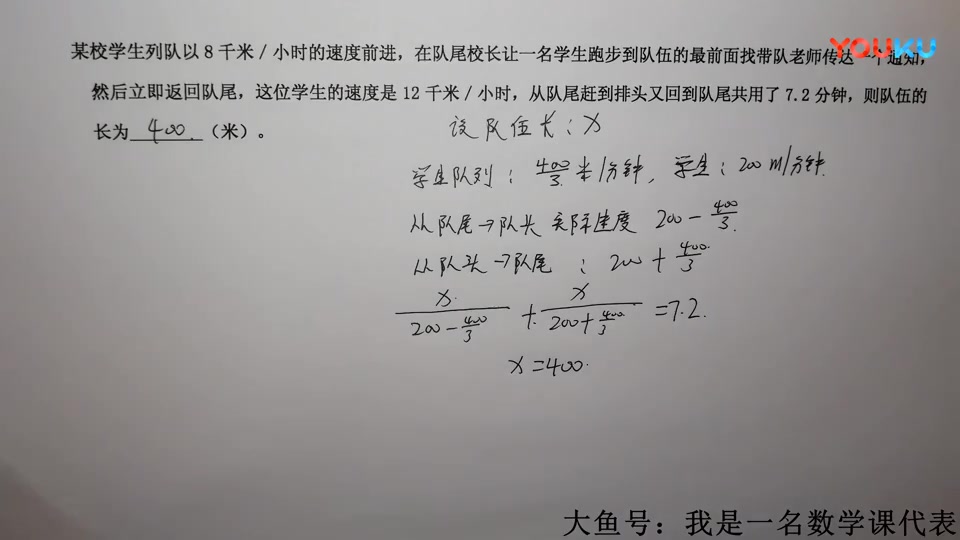 YOUKU
某校学生列队以8千米/小时的速度前进，在队尾校长让一名学生跑步到队伍的最前面找带队老师传达一个通知，
然后立即返回队尾，这位学生的速度是12千米/小时，从队尾赶到排头又回到队尾共用了7.2分钟，则队伍的
长为 400 （米）。
设队伍长：x
学生队列：400/3 米/分钟，学生：200 m/分钟.
从队尾→队头 实际速度 200 - 400/3.
从队头→队尾：200 + 400/3
x/(200 - 400/3) + x/(200 + 400/3) = 7.2.
x = 400.
大鱼号：我是一名数学课代表